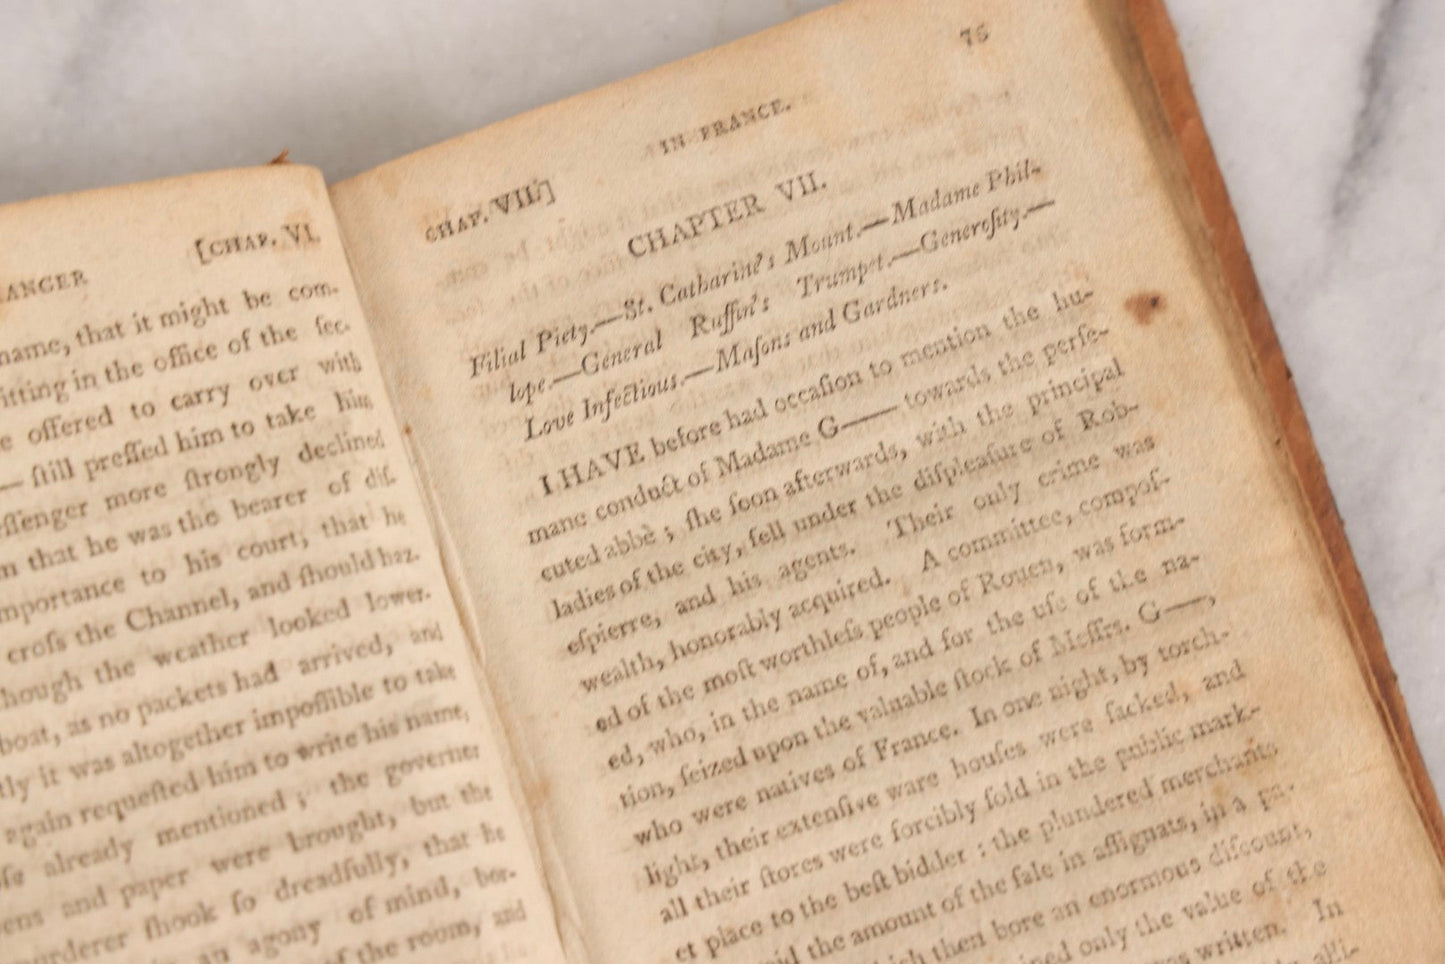 ANGER [CHAP. VI.
name, that it might be com-
itting in the office of the ſec-
e offered to carry over with
— ſtill preſſed him to take him
eſſenger more ſtrongly declined
m that he was the bearer of diſ-
mportance to his court, that he
croſs the Channel, and ſhould haz-
hough the weather looked lower-
boat, as no packets had arrived, and
tly it was altogether impoſſible to take
again requeſted him to write his name,
oſe already mentioned; the governer
ens and paper were brought, but the
murderer ſhook ſo dreadfully, that he
in an agony of mind, ber-
of the room, and
CHAP. VII.] IN FRANCE. 75
CHAPTER VII.
Filial Piety.—St. Catharine's Mount.—Madame Phil-
lope.—General Ruffin's Trumpet.—Generoſity.—
Love Infectious.—Maſons and Gardners.
I HAVE before had occaſion to mention the hu-
mane conduct of Madame G—— towards the perſe-
cuted abbè; ſhe ſoon afterwards, with the principal
ladies of the city, fell under the diſpleaſure of Rob-
eſpierre, and his agents. Their only crime was
wealth, honorably acquired. A committee, compoſ-
ed of the moſt worthleſs people of Rouen, was form-
ed, who, in the name of, and for the uſe of the na-
tion, ſeized upon the valuable ſtock of Meſſrs. G——,
who were natives of France. In one night, by torch-
light, their extenſive ware houſes were ſacked, and
all their ſtores were forcibly ſold in the public mark-
et place to the beſt bidder: the plundered merchants
the amount of the ſale in aſſignats, in a pa-
which then bore an enormous diſcount,
only the value of the
was written. In